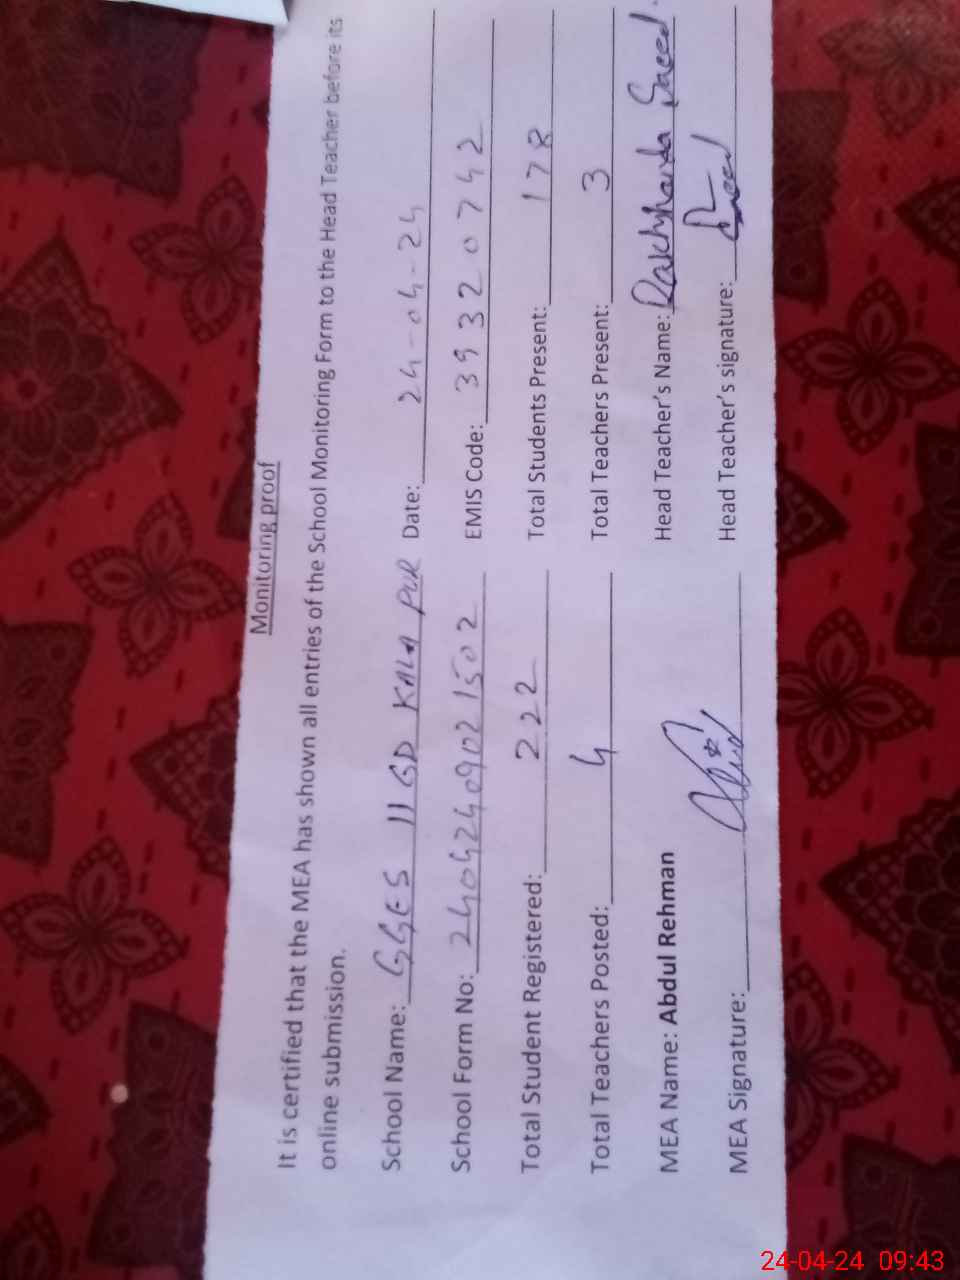 Monitoring proof
It is certified that the MEA has shown all entries of the School Monitoring Form to the Head Teacher before its
online submission.
School Name: GGES 11 GD KALA PUR Date: 24-04-24
School Form No: 24042409021502 EMIS Code: 39320742
Total Student Registered: 222 Total Students Present: 178
Total Teachers Posted: 4 Total Teachers Present: 3
MEA Name: Abdul Rehman Head Teacher's Name: Rakhshanda Saeed.
MEA Signature: Head Teacher's signature: Saeed
24-04-24 09:43